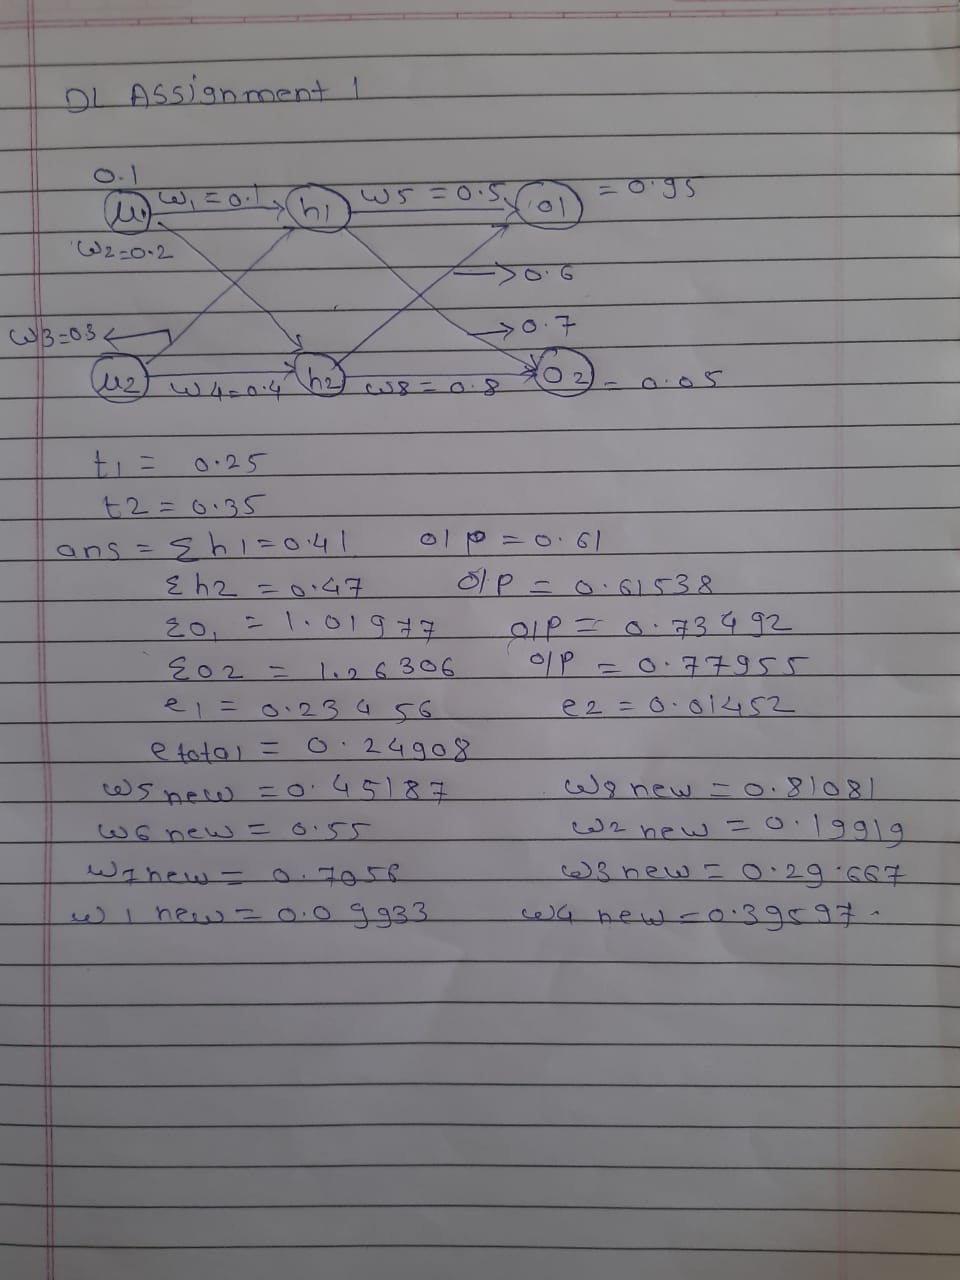 DL Assignment 1
0.1
u1 w1 = 0.1 h1 w5 = 0.5 o1 = 0.95
w2=0.2
→0.6
w3=03 →0.7
u2 w4=0.4 h2 w8 = 0.8 O2 = 0.05
t1 = 0.25
t2 = 0.35
ans = Σh1=0.41 o/p = 0.61
Σh2 = 0.47 o/p = 0.61538
Σo1 = 1.01977 o/p = 0.73492
Σo2 = 1.26306 o/p = 0.77955
e1 = 0.23456 e2 = 0.01452
etotal = 0.24908
w5 new = 0.45187 w8 new = 0.81081
w6 new = 0.55 w2 new = 0.19919
w7 new = 0.7056 w3 new = 0.29.667
w1 new = 0.09933 w4 new = 0.39597.